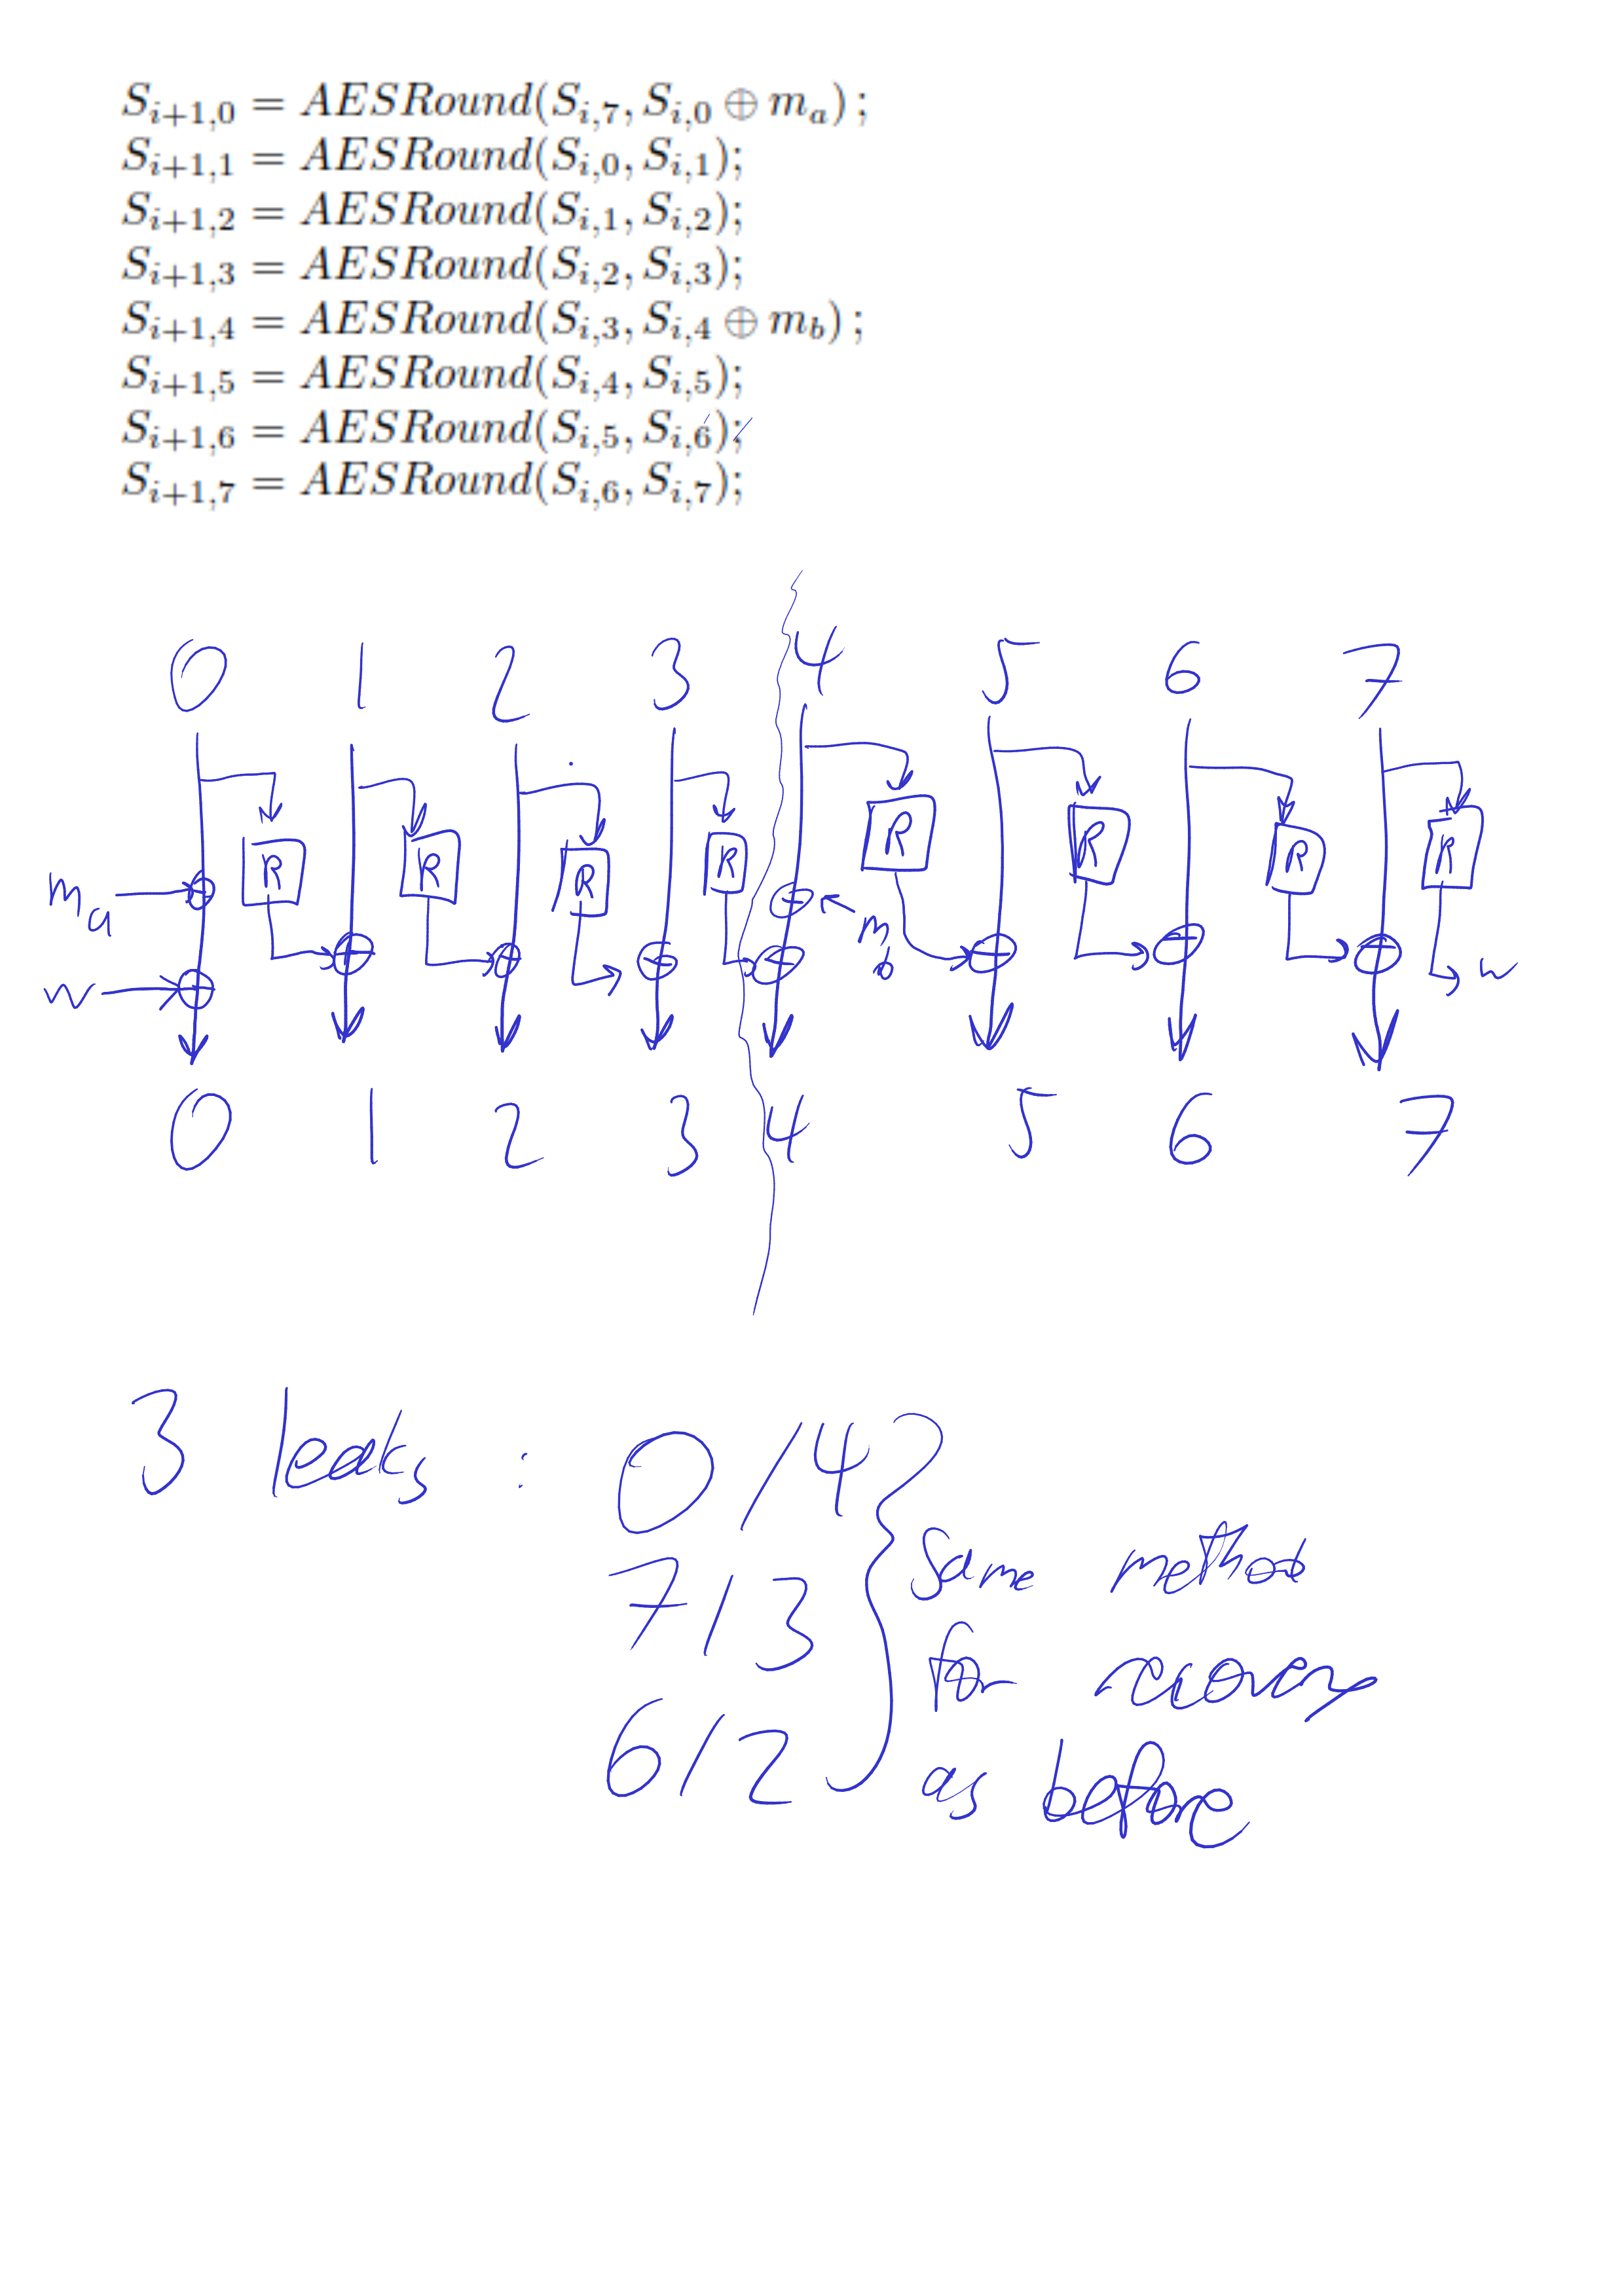 S_{i+1,0} = AESRound(S_{i,7}, S_{i,0} ⊕ m_a);
S_{i+1,1} = AESRound(S_{i,0}, S_{i,1});
S_{i+1,2} = AESRound(S_{i,1}, S_{i,2});
S_{i+1,3} = AESRound(S_{i,2}, S_{i,3});
S_{i+1,4} = AESRound(S_{i,3}, S_{i,4} ⊕ m_b);
S_{i+1,5} = AESRound(S_{i,4}, S_{i,5});
S_{i+1,6} = AESRound(S_{i,5}, S_{i,6});
S_{i+1,7} = AESRound(S_{i,6}, S_{i,7});
0 1 2 3 4 5 6 7
R R R R R R R R
m_a m_b
w w
0 1 2 3 4 5 6 7
3 leaks : 0/4
7/3 Same method
for recovery
6/2 as before